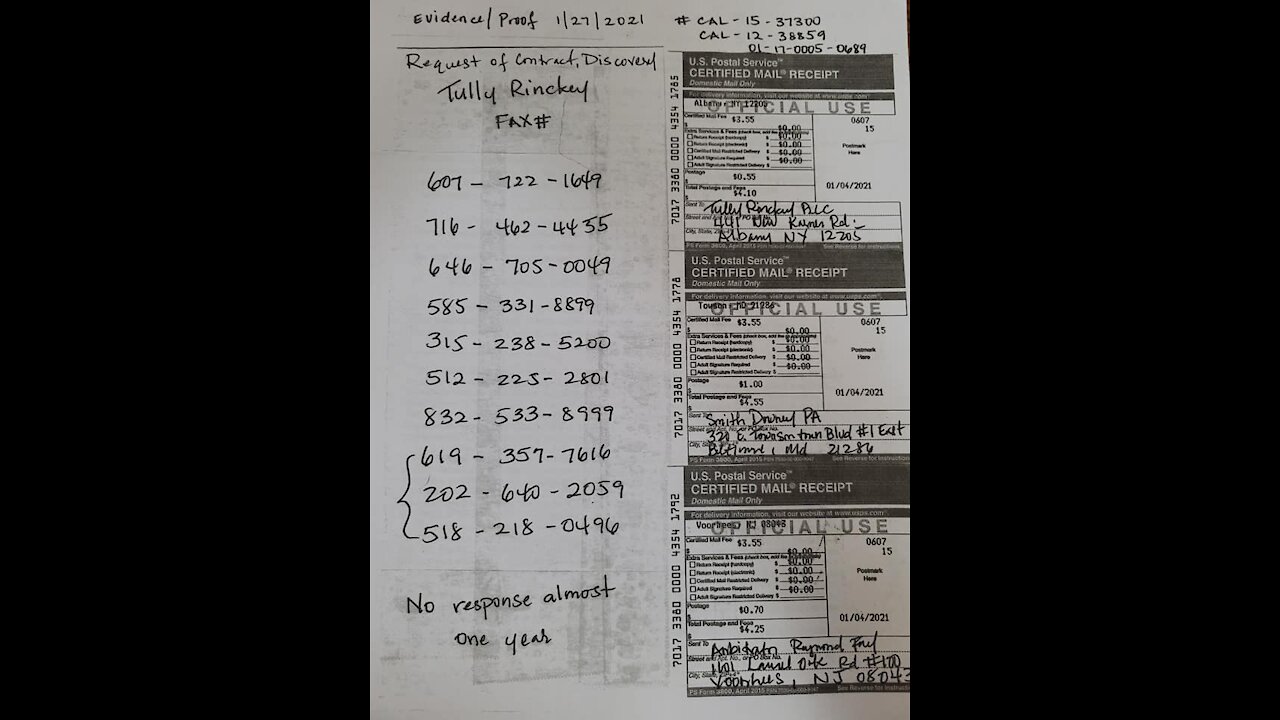 Evidence/Proof 1/27/2021
# CAL-15-37300
CAL-12-38859
01-17-0005-0689
Request of Contract, Discovery
Tully Rinckey
FAX#
607 - 722 - 1649
716 - 462 - 4435
646 - 705 - 0049
585 - 331 - 8899
315 - 238 - 5200
512 - 225 - 2801
832 - 533 - 8999
619 - 357 - 7616
202 - 640 - 2059
518 - 218 - 0496
No response almost
one year
7017 3380 0000 4354 1785
U.S. Postal Service™
CERTIFIED MAIL® RECEIPT
Domestic Mail Only
For delivery information, visit our website at www.usps.com®.
Albany, NY 12205
OFFICIAL USE
Certified Mail Fee $3.55
0607
15
$
$0.00
Extra Services & Fees (check box, add fee as appropriate)
Return Receipt (hardcopy) $ $0.00
Return Receipt (electronic) $ $0.00
Certified Mail Restricted Delivery $ $0.00
Adult Signature Required $ $0.00
Adult Signature Restricted Delivery $
Postmark
Here
Postage
$0.55
$
Total Postage and Fees
$4.10
$
01/04/2021
Sent To Tully Rinckey PLLC
Street and Apt. No., or PO Box No. 441 New Karner Rd.
City, State, ZIP+4® Albany NY 12205
PS Form 3800, April 2015 PSN 7530-02-000-9047 See Reverse for Instructions
7017 3380 0000 4354 1778
U.S. Postal Service™
CERTIFIED MAIL® RECEIPT
Domestic Mail Only
For delivery information, visit our website at www.usps.com®.
Towson, MD 21286
OFFICIAL USE
Certified Mail Fee $3.55
0607
15
$
$0.00
Extra Services & Fees (check box, add fee as appropriate)
Return Receipt (hardcopy) $ $0.00
Return Receipt (electronic) $ $0.00
Certified Mail Restricted Delivery $ $0.00
Adult Signature Required $ $0.00
Adult Signature Restricted Delivery $
Postmark
Here
Postage
$1.00
$
Total Postage and Fees
$4.55
$
01/04/2021
Sent To Smith Downey PA
Street and Apt. No., or PO Box No. 320 E. Towsontown Blvd #1 East
City, State, ZIP+4® Baltimore, Md 21286
PS Form 3800, April 2015 PSN 7530-02-000-9047 See Reverse for Instructions
7017 3380 0000 4354 1792
U.S. Postal Service™
CERTIFIED MAIL® RECEIPT
Domestic Mail Only
For delivery information, visit our website at www.usps.com®.
Voorhees, NJ 08043
OFFICIAL USE
Certified Mail Fee $3.55
0607
15
$
$0.00
Extra Services & Fees (check box, add fee as appropriate)
Return Receipt (hardcopy) $ $0.00
Return Receipt (electronic) $ $0.00
Certified Mail Restricted Delivery $ $0.00
Adult Signature Required $ $0.00
Adult Signature Restricted Delivery $
Postmark
Here
Postage
$0.70
$
Total Postage and Fees
$4.25
$
01/04/2021
Sent To Arbitrator Raymond
Street and Apt. No., or PO Box No. 1101 Laurel Oak Rd #100
City, State, ZIP+4® Voorhees, NJ 08043
PS Form 3800, April 2015 PSN 7530-02-000-9047 See Reverse for Instructions